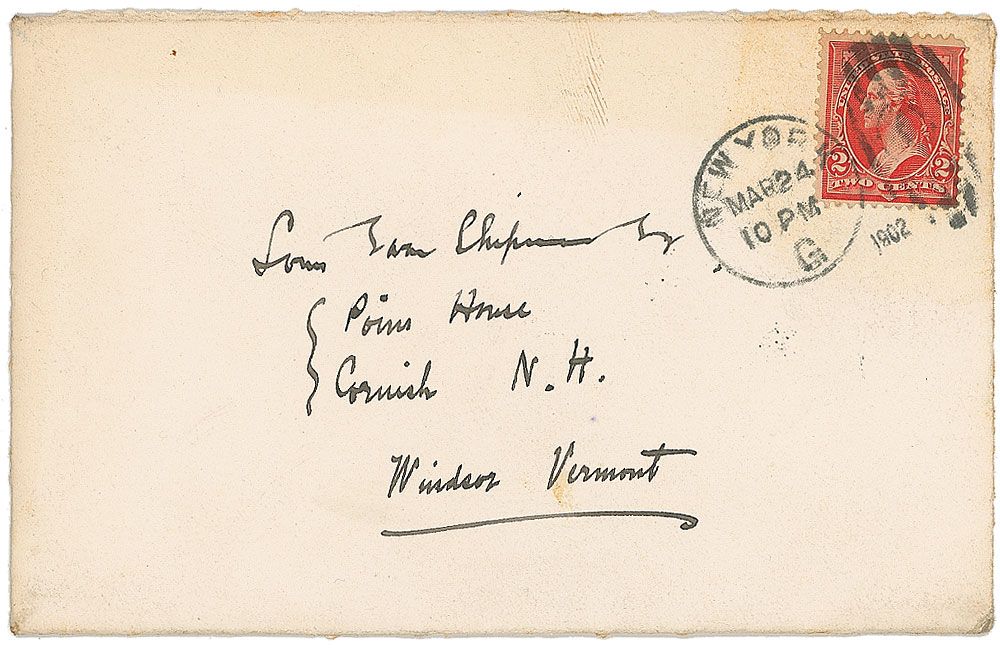 UNITED STATES POSTAGE
2 2
TWO CENTS
NEW YORK
MAR 24
10 PM
G
1902
Louis Evan Shipman Esq
Poins House
Cornish N.H.
Windsor Vermont